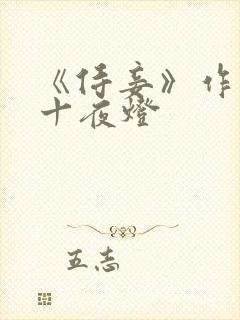 《侍妾》作
十夜燈
五志